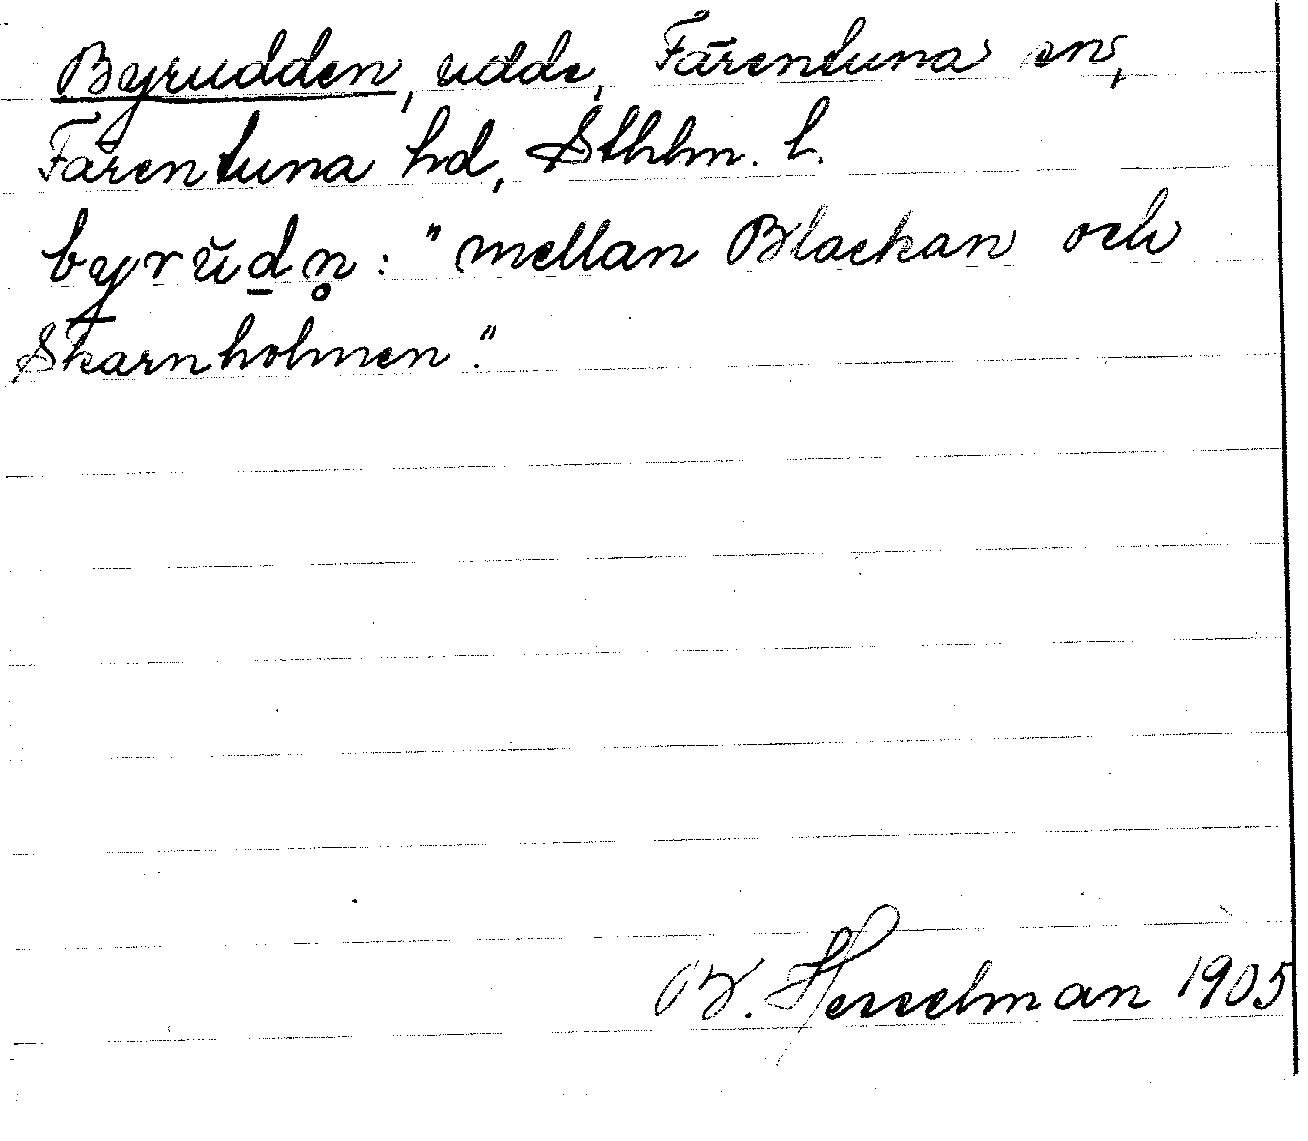 Byrudden, udde, Färentuna sn,
Färentuna hd, Sthlm. l.
byrŭd̲n̥: "mellan Blackan och
Skarnholmen".
B. Hesselman 1905